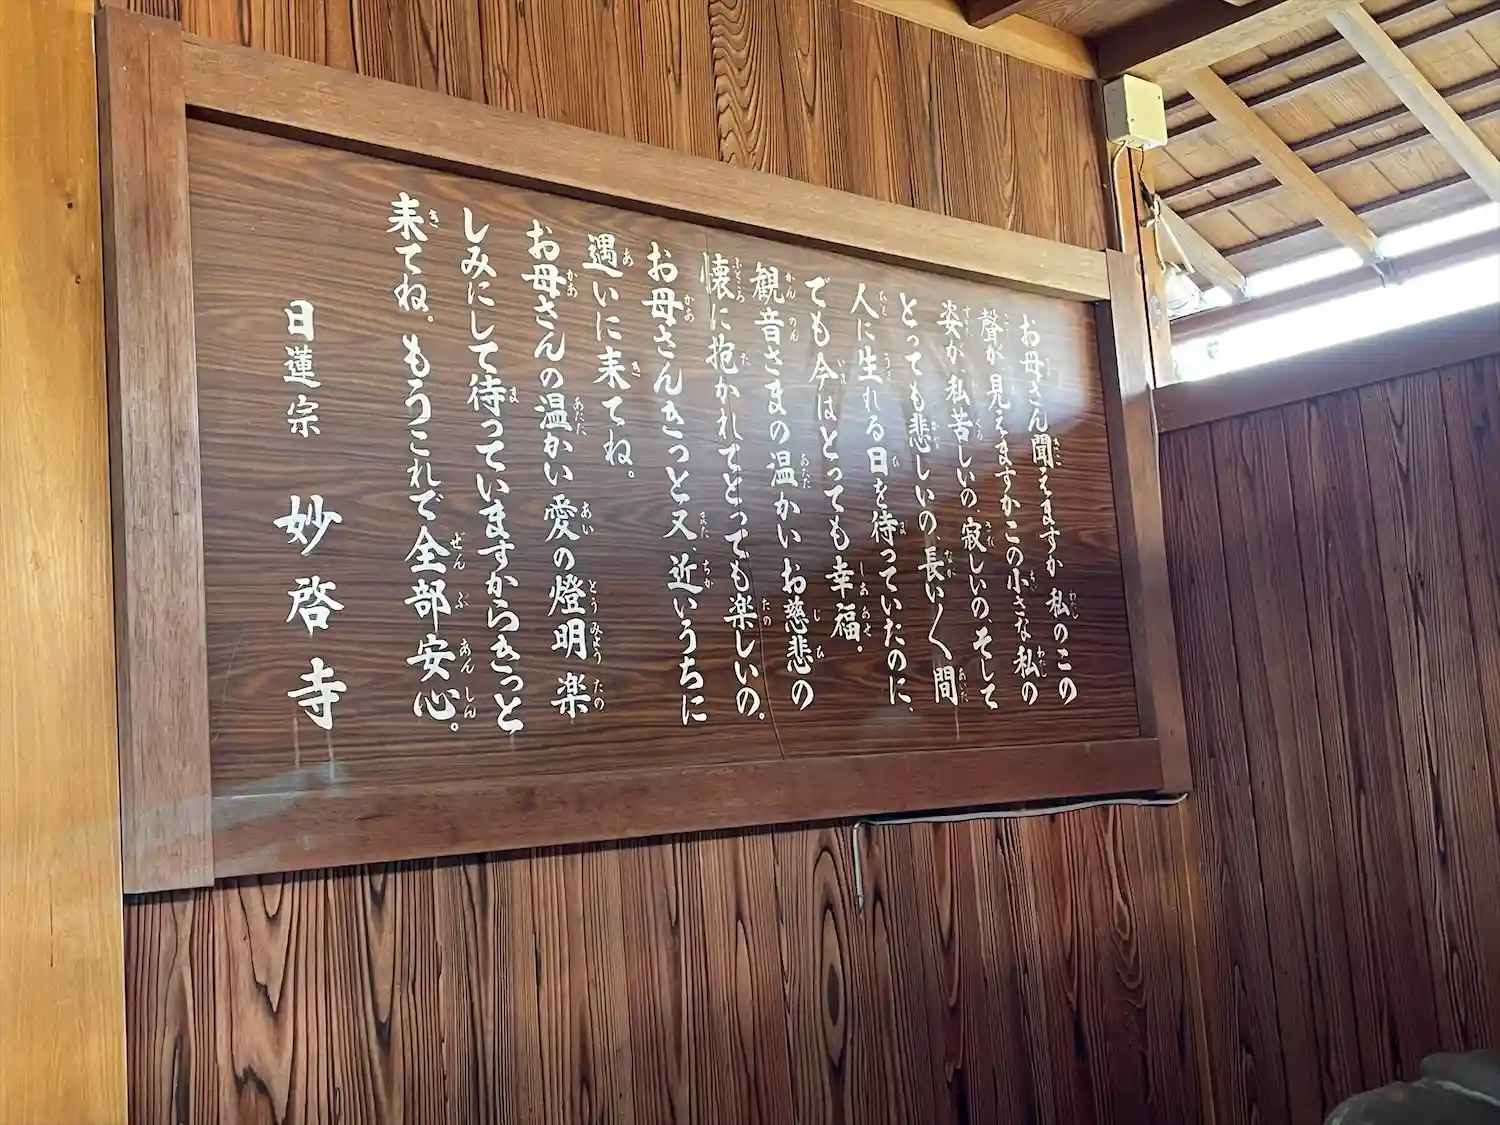 お母さん聞えますか私のこの
聲が見えますかこの小さな私の
姿が私苦しいの、寂しいの、そして
とっても悲しいの、長い〱間
人に生れる日を待っていたのに、
でも今はとっても幸福。
観音さまの温かいお慈悲の
懐に抱かれてとっても楽しいの。
お母さんきっと又、近いうちに
遇いに来てね。
お母さんの温かい愛の燈明楽
しみにして待っていますからきっと
来てね。もうこれで全部安心。
日蓮宗 妙啓寺